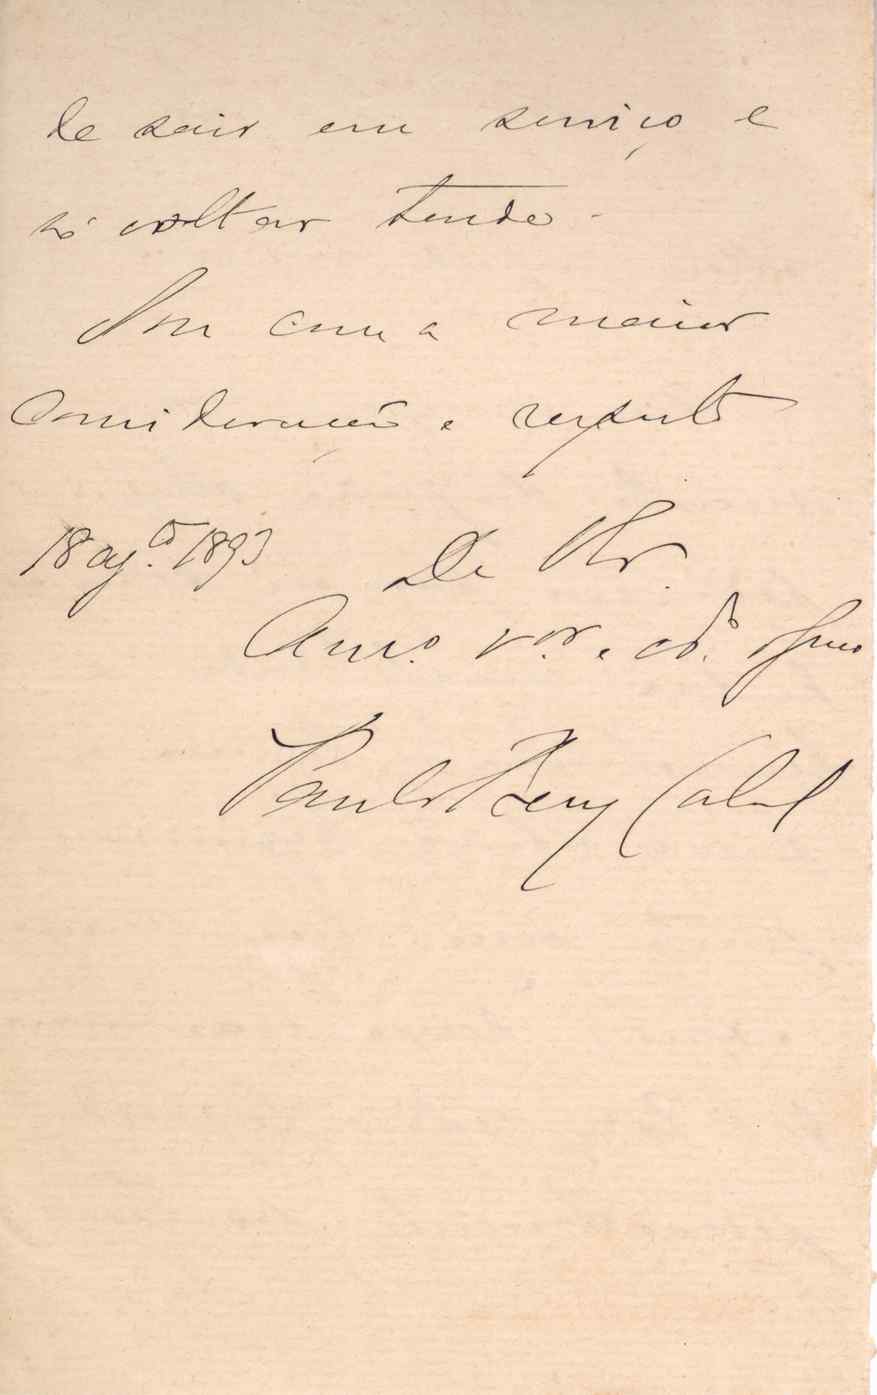 de sair em serviço e
só voltar tarde.
Sou com a maior
Consideração e respeito
18 ag.to 1893 De V. Ex.
Am.o v.or e cr.o
Paulo Benj Cabral